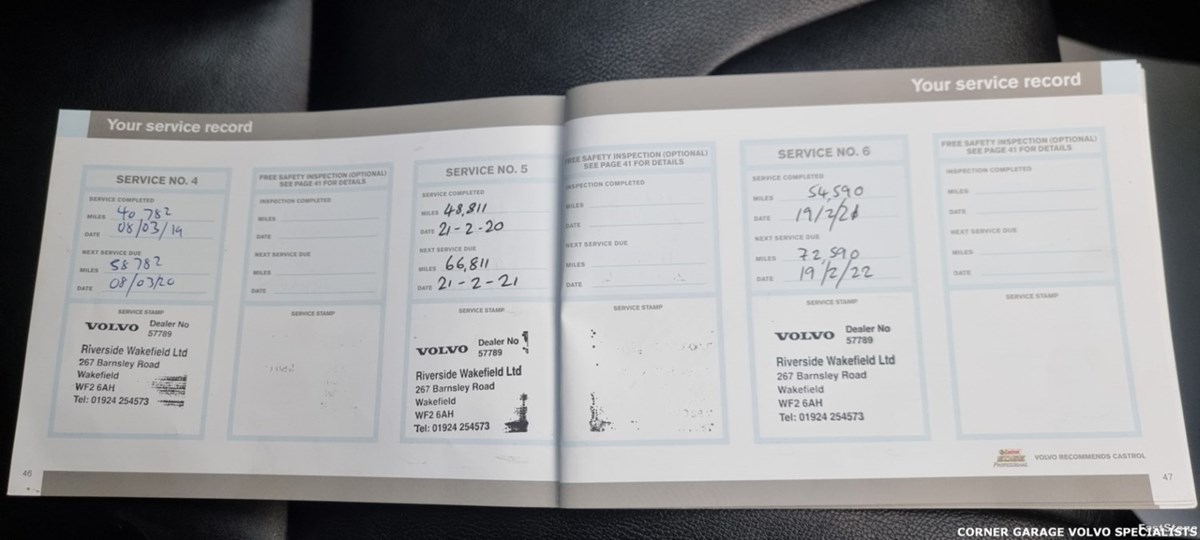 Your service record
SERVICE NO. 4
SERVICE COMPLETED
MILES 40,782
DATE 08/03/19
NEXT SERVICE DUE
MILES 58782
DATE 08/03/20
SERVICE STAMP
VOLVO Dealer No
57789
Riverside Wakefield Ltd
267 Barnsley Road
Wakefield
WF2 6AH
Tel: 01924 254573
FREE SAFETY INSPECTION (OPTIONAL)
SEE PAGE 41 FOR DETAILS
INSPECTION COMPLETED
MILES
DATE
NEXT SERVICE DUE
MILES
DATE
SERVICE STAMP
SERVICE NO. 5
SERVICE COMPLETED
MILES 48,811
DATE 21-2-20
NEXT SERVICE DUE
MILES 66,811
DATE 21-2-21
SERVICE STAMP
VOLVO Dealer No
57789
Riverside Wakefield Ltd
267 Barnsley Road
Wakefield
WF2 6AH
Tel: 01924 254573
46
Your service record
FREE SAFETY INSPECTION (OPTIONAL)
SEE PAGE 41 FOR DETAILS
INSPECTION COMPLETED
MILES
DATE
NEXT SERVICE DUE
MILES
DATE
SERVICE STAMP
SERVICE NO. 6
SERVICE COMPLETED
MILES 54,590
DATE 19/2/21
NEXT SERVICE DUE
MILES 72,590
DATE 19/2/22
SERVICE STAMP
VOLVO Dealer No
57789
Riverside Wakefield Ltd
267 Barnsley Road
Wakefield
WF2 6AH
Tel: 01924 254573
FREE SAFETY INSPECTION (OPTIONAL)
SEE PAGE 41 FOR DETAILS
INSPECTION COMPLETED
MILES
DATE
NEXT SERVICE DUE
MILES
DATE
SERVICE STAMP
Castrol
EDGE
PROFESSIONAL
VOLVO RECOMMENDS CASTROL
47
CORNER GARAGE VOLVO SPECIALISTS